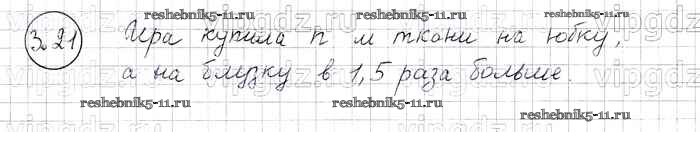 reshebnik5-11.ru reshebnik5-11.ru
3.21 Ира купила n м ткани на юбку,
а на блузку в 1,5 раза больше.
reshebnik5-11.ru reshebnik5-11.ru